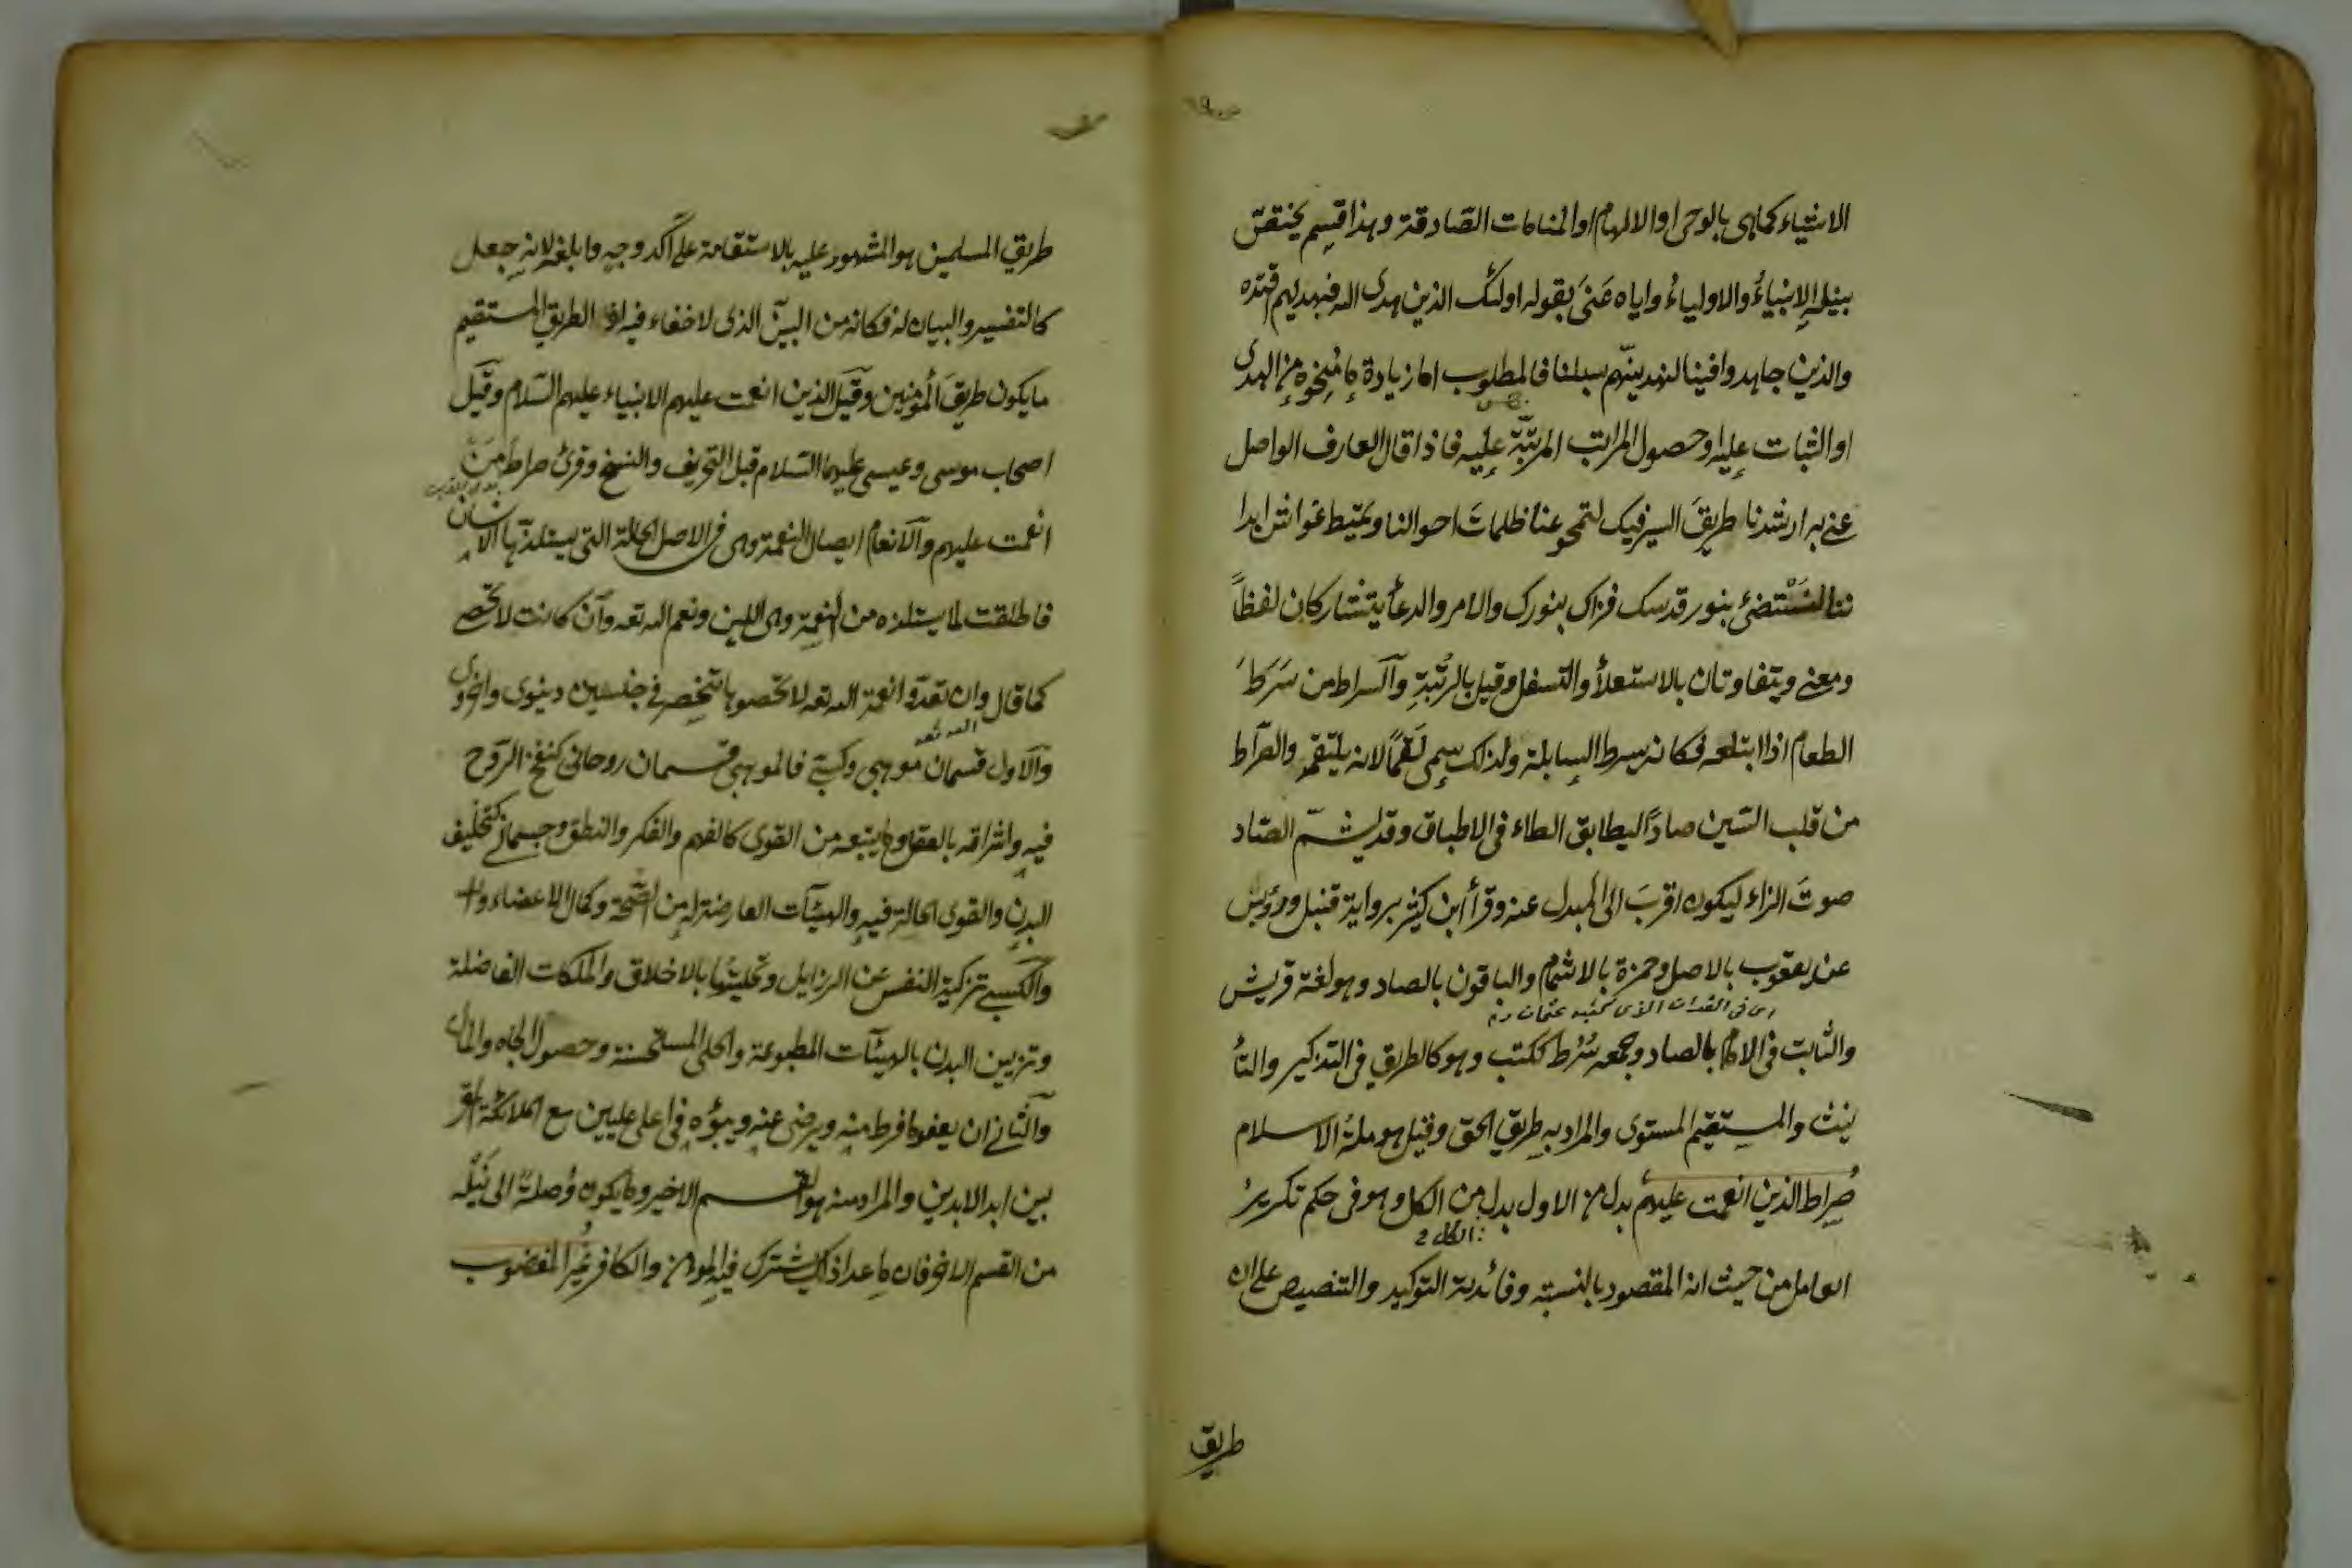 الاشياء كماهى بالوحى او الالهام او المنامات الصادقة وهذا قسم يختصّ
بنيله الانبياءُ والاولياءُ واياه عَنىَ بقوله اولئك الذين هدى الله فبهديهم اقتده
والذين جاهدوا فينا لنهدينّهم سبلنا فالمطلوب اما زيادة ما مُنِحُوه من الهدى
او الثبات عليه او حصول المراتب المرتّبة عليه فاذا قال العارف الواصل
عنى به ارشدنا طريقَ السير فيك لتمحو عنا ظلماتَ احوالنا وتميط غواشى ابدا
ننا لنَسْتضئ بنور قدسك فنراك بنورك والامر والدعأ يتشاركان لفظاً
ومعنى ويتفاوتان بالاستعلأ والتسفل وقيل بالرُتبةِ والسراط من سَرَطَ
الطعام اذا ابتلعه فكانه يسرط السابلة ولذلك سمى لَقَمًا لانه يلتقمهم والصراط
من قلب السّين صادًا ليطابق الطاء فى الاطباق وقد يشمّ الصّاد
صوتَ الزاء ليكون اقربَ الى المبدل عنه وقرأ ابن كثير برواية قنبل ورويس
عن يعقوب بالاصل وحمزة بالاشمام والباقون بالصاد وهو لغة قريش
اى فى القران الذى كتبه عثمان رم
والثابت فى الامام بالصاد وجمعه سُرُط ككتب وهو كالطريق فى التذكير والتأ
نيث والمستقيم المستوى والمراد به طريق الحق وقيل هو ملة الاسلام
صِراط الذين انعمت عليهم بدل من الاول بدل من الكل وهو فى حكم تكرير
الكل
العامل من حيث انه المقصود بالنسبة وفائدته التوكيد والتنصيص على ان
طريق
طريق المسلمين هو المشهود عليه بالاستقامة على آكد وجه وابلغه لانه جعل
كالتفسير والبيان له فكانه من البيّن الذى لا خفاء فيه ان الطريق المستقيم
ما يكون طريقَ المؤمنين وقيل الذين انعمت عليهم الانبياء عليهم السّلام وقيل
اصحاب موسى وعيسى عليهما السّلام قبل التحريف والنسخ وقرئ صراط مَنْ
انعمت عليهم والانعام ايصال النعمة وهى فى الاصل الحالة التى يستلذّها الانسان
فاطلقت لما يستلذه من النعمة وهى اللين ونعم الله تعه وان كانت لا تحصى
كما قال وان تعدّوا نعمة الله تعه لا تحصوها تنحصر فى جنسين دنيوى واخروى
الله تعه
والاول قسمان موهبى وكسبى فالموهبى قسمان روحانى كنفخ الروح
فيه واشراقه بالعقل وما يتبعه من القوى كالفهم والفكر والنطق وجسمانى كتخليق
البدن والقوى الحالة فيه والهيئات العارضة له من الصّحة وكمال الاعضاء
والكسبى تزكية النفس عن الرذايل وتحليتُها بالاخلاق والملكات الفاضلة
وتزيين البدن بالهيئات المطبوعة والحلى المستحسنة وحصول الجاه والمال
والثانى ان يعفو ما فرط منه ويرضى عنه ويبؤه فى اعلى عليين مع الملائكة المقر
بين ابد الابدين والمراد منه هو القسم الاخير وما يكون وُصلةً الى نَيْله
من القسم الاخر فان ما عدا ذلك يشترك فيه المؤمن والكافر غير المغضوب